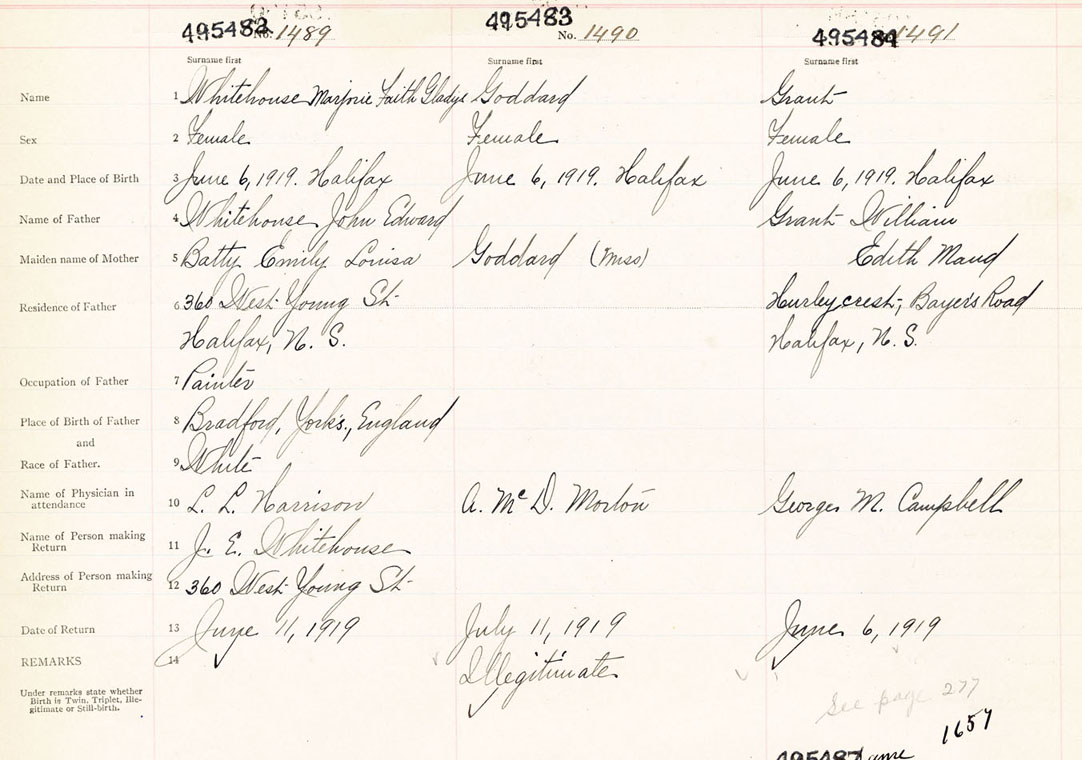 495482 No. 1489 495483 No. 1490 495484 1491
Surname first Surname first Surname first
Name 1 Whitehouse Marjorie Faith Gladys Goddard Grant
Sex 2 Female Female Female
Date and Place of Birth 3 June 6, 1919. Halifax June 6, 1919. Halifax June 6, 1919. Halifax
Name of Father 4 Whitehouse John Edward Grant William
Maiden name of Mother 5 Batty Emily Louisa Goddard (Miss) Edith Maud
Residence of Father 6 360 West Young St Hurleycrest, Bayer's Road
Halifax, N. S. Halifax, N. S.
Occupation of Father 7 Painter
Place of Birth of Father 8 Bradford, York's., England
and
Race of Father. 9 White
Name of Physician in attendance 10 L. L. Harrison A. McD. Morton George M. Campbell
Name of Person making Return 11 J. E. Whitehouse
Address of Person making Return 12 360 West Young St
Date of Return 13 June 11, 1919 July 11, 1919 June 6, 1919
REMARKS 14 Illegitimate
Under remarks state whether
Birth is Twin, Triplet, Ille-
gitimate or Still-birth.
See page 277
1657
495487